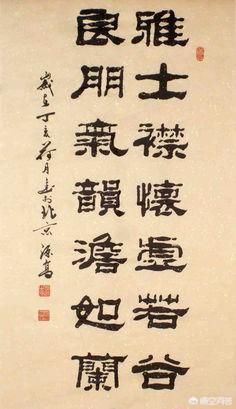 雅士襟懷虛若谷
良朋氣韻澹如蘭
歲在丁亥荷月書於北京
悟空问答